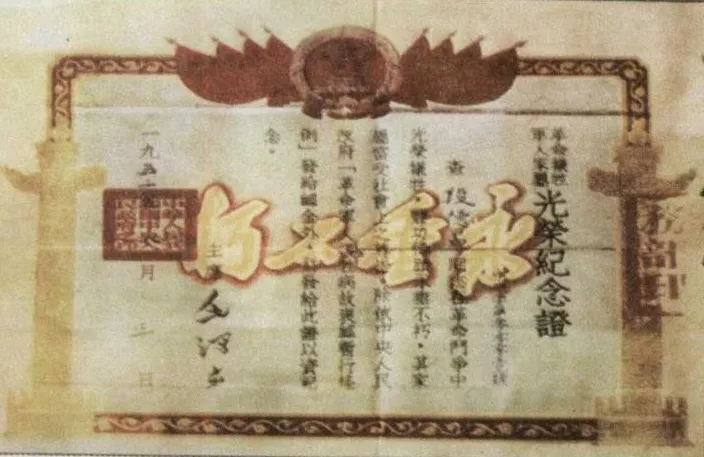 革命犧牲
軍人家屬
光榮紀念證
查段德昌同志在革命鬥爭中
光榮犧牲，豐功偉績永垂不朽，其家
屬當受社會上之尊崇。除依中央人民
政府「革命軍人犧牲病故褒恤暫行條
例」發給恤金外，並發給此證以資紀
念。
主席 毛澤東
一九五二年 月 三日
永垂不朽